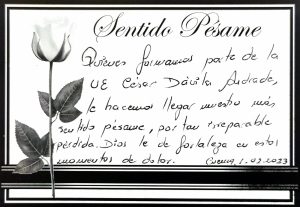 Sentido Pésame
Quienes formamos parte de la
UE César Dávila Andrade,
le hacemos llegar nuestro más
sentido pésame, por tan irreparable
pérdida. Dios le de fortaleza en estos
momentos de dolor. Cuenca, 1.02.2023